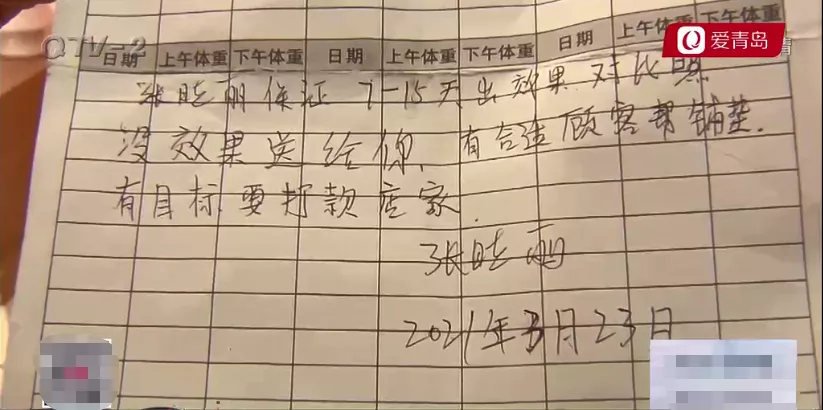 QTV-2
爱青岛
日期 上午体重 下午体重 日期 上午体重 下午体重 日期 上午体重 下午体重
张晓丽保证 7-15天出效果 对比照
没效果送给你、有合适顾客帮铺垫.
有目标要打款店家.
张晓丽
2021年3月23日